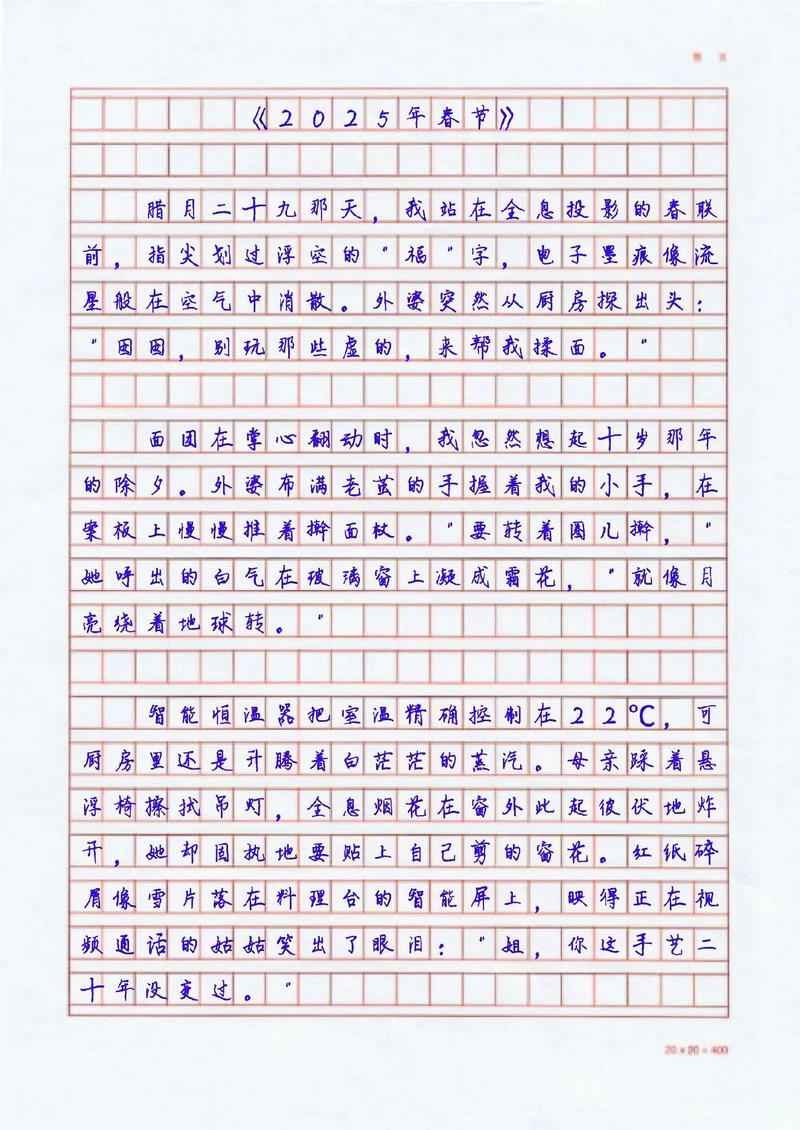 第 页
《2025年春节》
腊月二十九那天,我站在全息投影的春联
前,指尖划过浮空的"福"字,电子墨痕像流
星般在空气中消散。外婆突然从厨房探出头:
"囡囡,别玩那些虚的,来帮我揉面。"
面团在掌心翻动时,我忽然想起十岁那年
的除夕。外婆布满老茧的手握着我的小手,在
案板上慢慢推着擀面杖。"要转着圈儿擀,"
她呼出的白气在玻璃窗上凝成霜花,"就像月
亮绕着地球转。"
智能恒温器把室温精确控制在22℃,可
厨房里还是升腾着白茫茫的蒸汽。母亲踩着悬
浮椅擦拭吊灯,全息烟花在窗外此起彼伏地炸
开,她却固执地要贴上自己剪的窗花。红纸碎
屑像雪片落在料理台的智能屏上,映得正在视
频通话的姑姑笑出了眼泪:"姐,你这手艺二
十年没变过。"
20×20=400